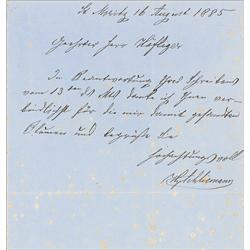 St Moritz 16 August 1885
Geehrter Herr Häfliger
In Beantwortung Ihres Schreibens
vom 13ten ds Mts danke ich Ihnen ver-
bindlichst für die mir damit gesandten
Blumen und begrüsse Sie
hochachtungsvoll
HySchliemann